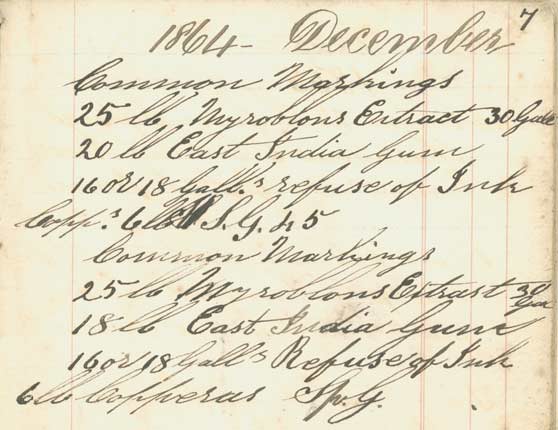 7
1864 - December
Common Markings
25 lb Myroblons Extract 30 Galls
20 lb East India Gum
16 or 18 Gall.s refuse of Ink
Copp.s 6 lb S.G. 45
Common Markings
25 lb Myroblons Extract 30 Ga
18 lb East India Gum
16 or 18 Gall.s Refuse of Ink
6 lb Copperas Sp. G.